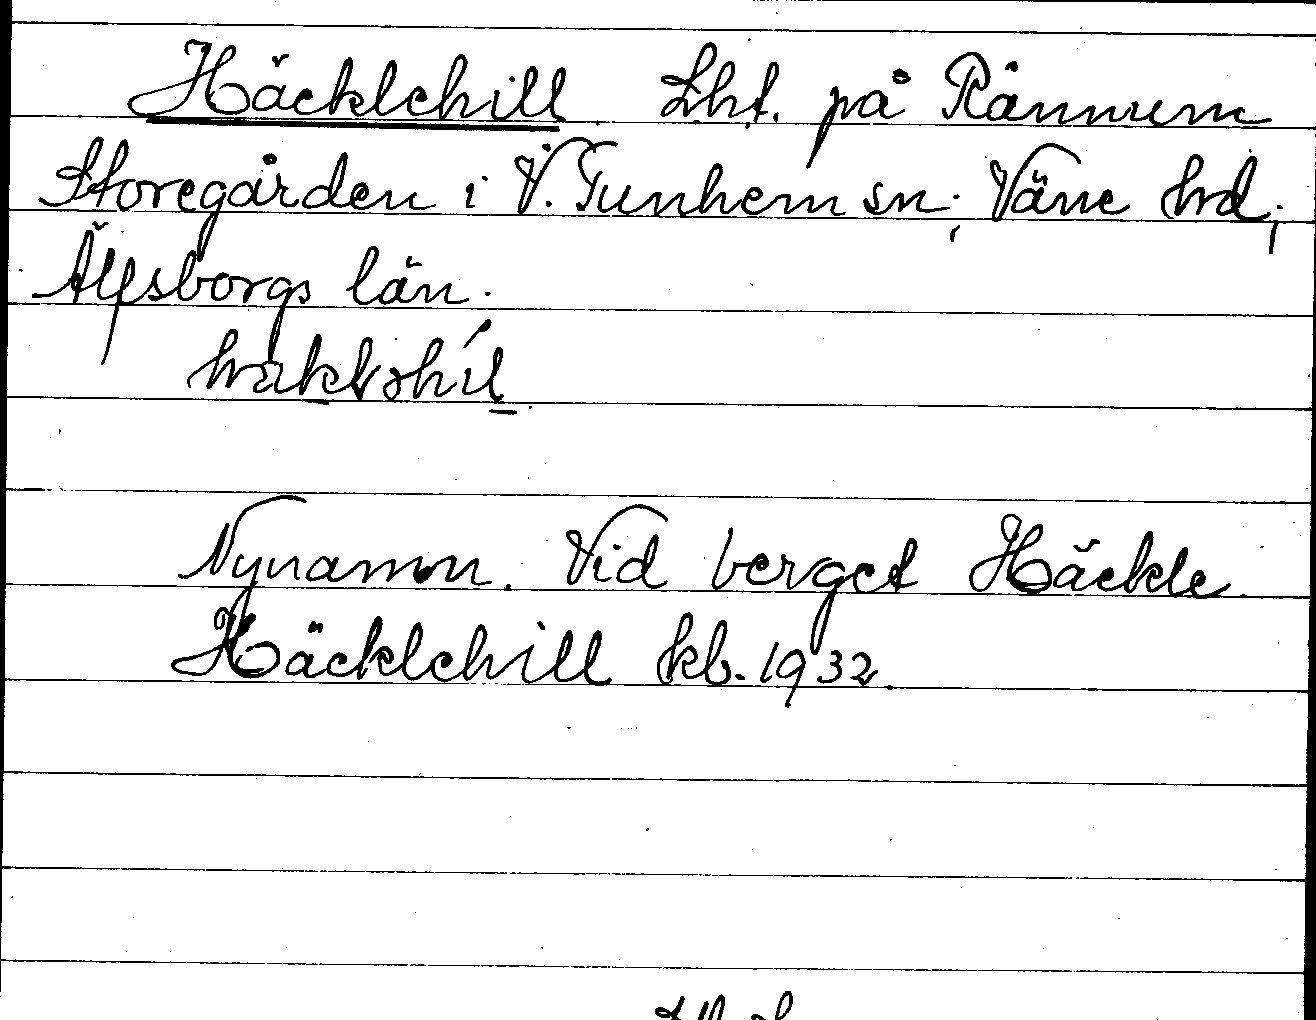 Häcklehill Lht. på Rånnum
Storegården i V. Tunhem sn; Väne hd;
Älfsborgs län.

Nynamn. Vid berget Häckle
Häcklehill kb. 1932.